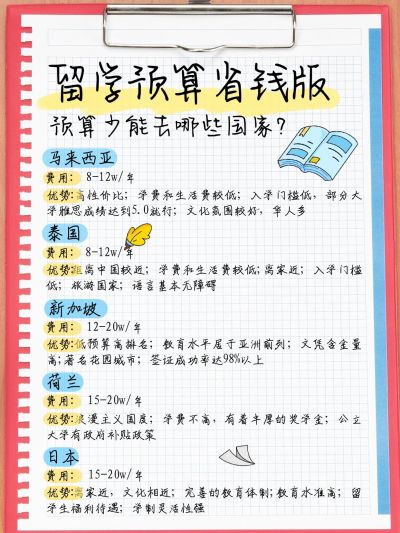 留学预算省钱版
预算少能去哪些国家?
马来西亚
费用: 8-12w/年
优势:高性价比; 学费和生活费较低; 入学门槛低, 部分大
学雅思成绩达到5.0就行; 文化氛围较好, 华人多
泰国
费用: 8-12w/年
优势:距离中国较近; 学费和生活费较低;离家近; 入学门槛
低; 旅游国家; 语言基本无障碍
新加坡
费用: 12-20w/年
优势:低预算高排名; 教育水平居于亚洲前列; 文凭含金量
高;著名花园城市; 签证成功率达98%以上
荷兰
费用: 15-20w/年
优势:浪漫主义国度; 学费不高, 有着丰厚的奖学金; 公立
大学有政府补贴政策
日本
费用: 15-20w/年
优势:离家近, 文化相近; 完善的教育体制;教育水准高; 留
学生福利待遇; 学制灵活性强